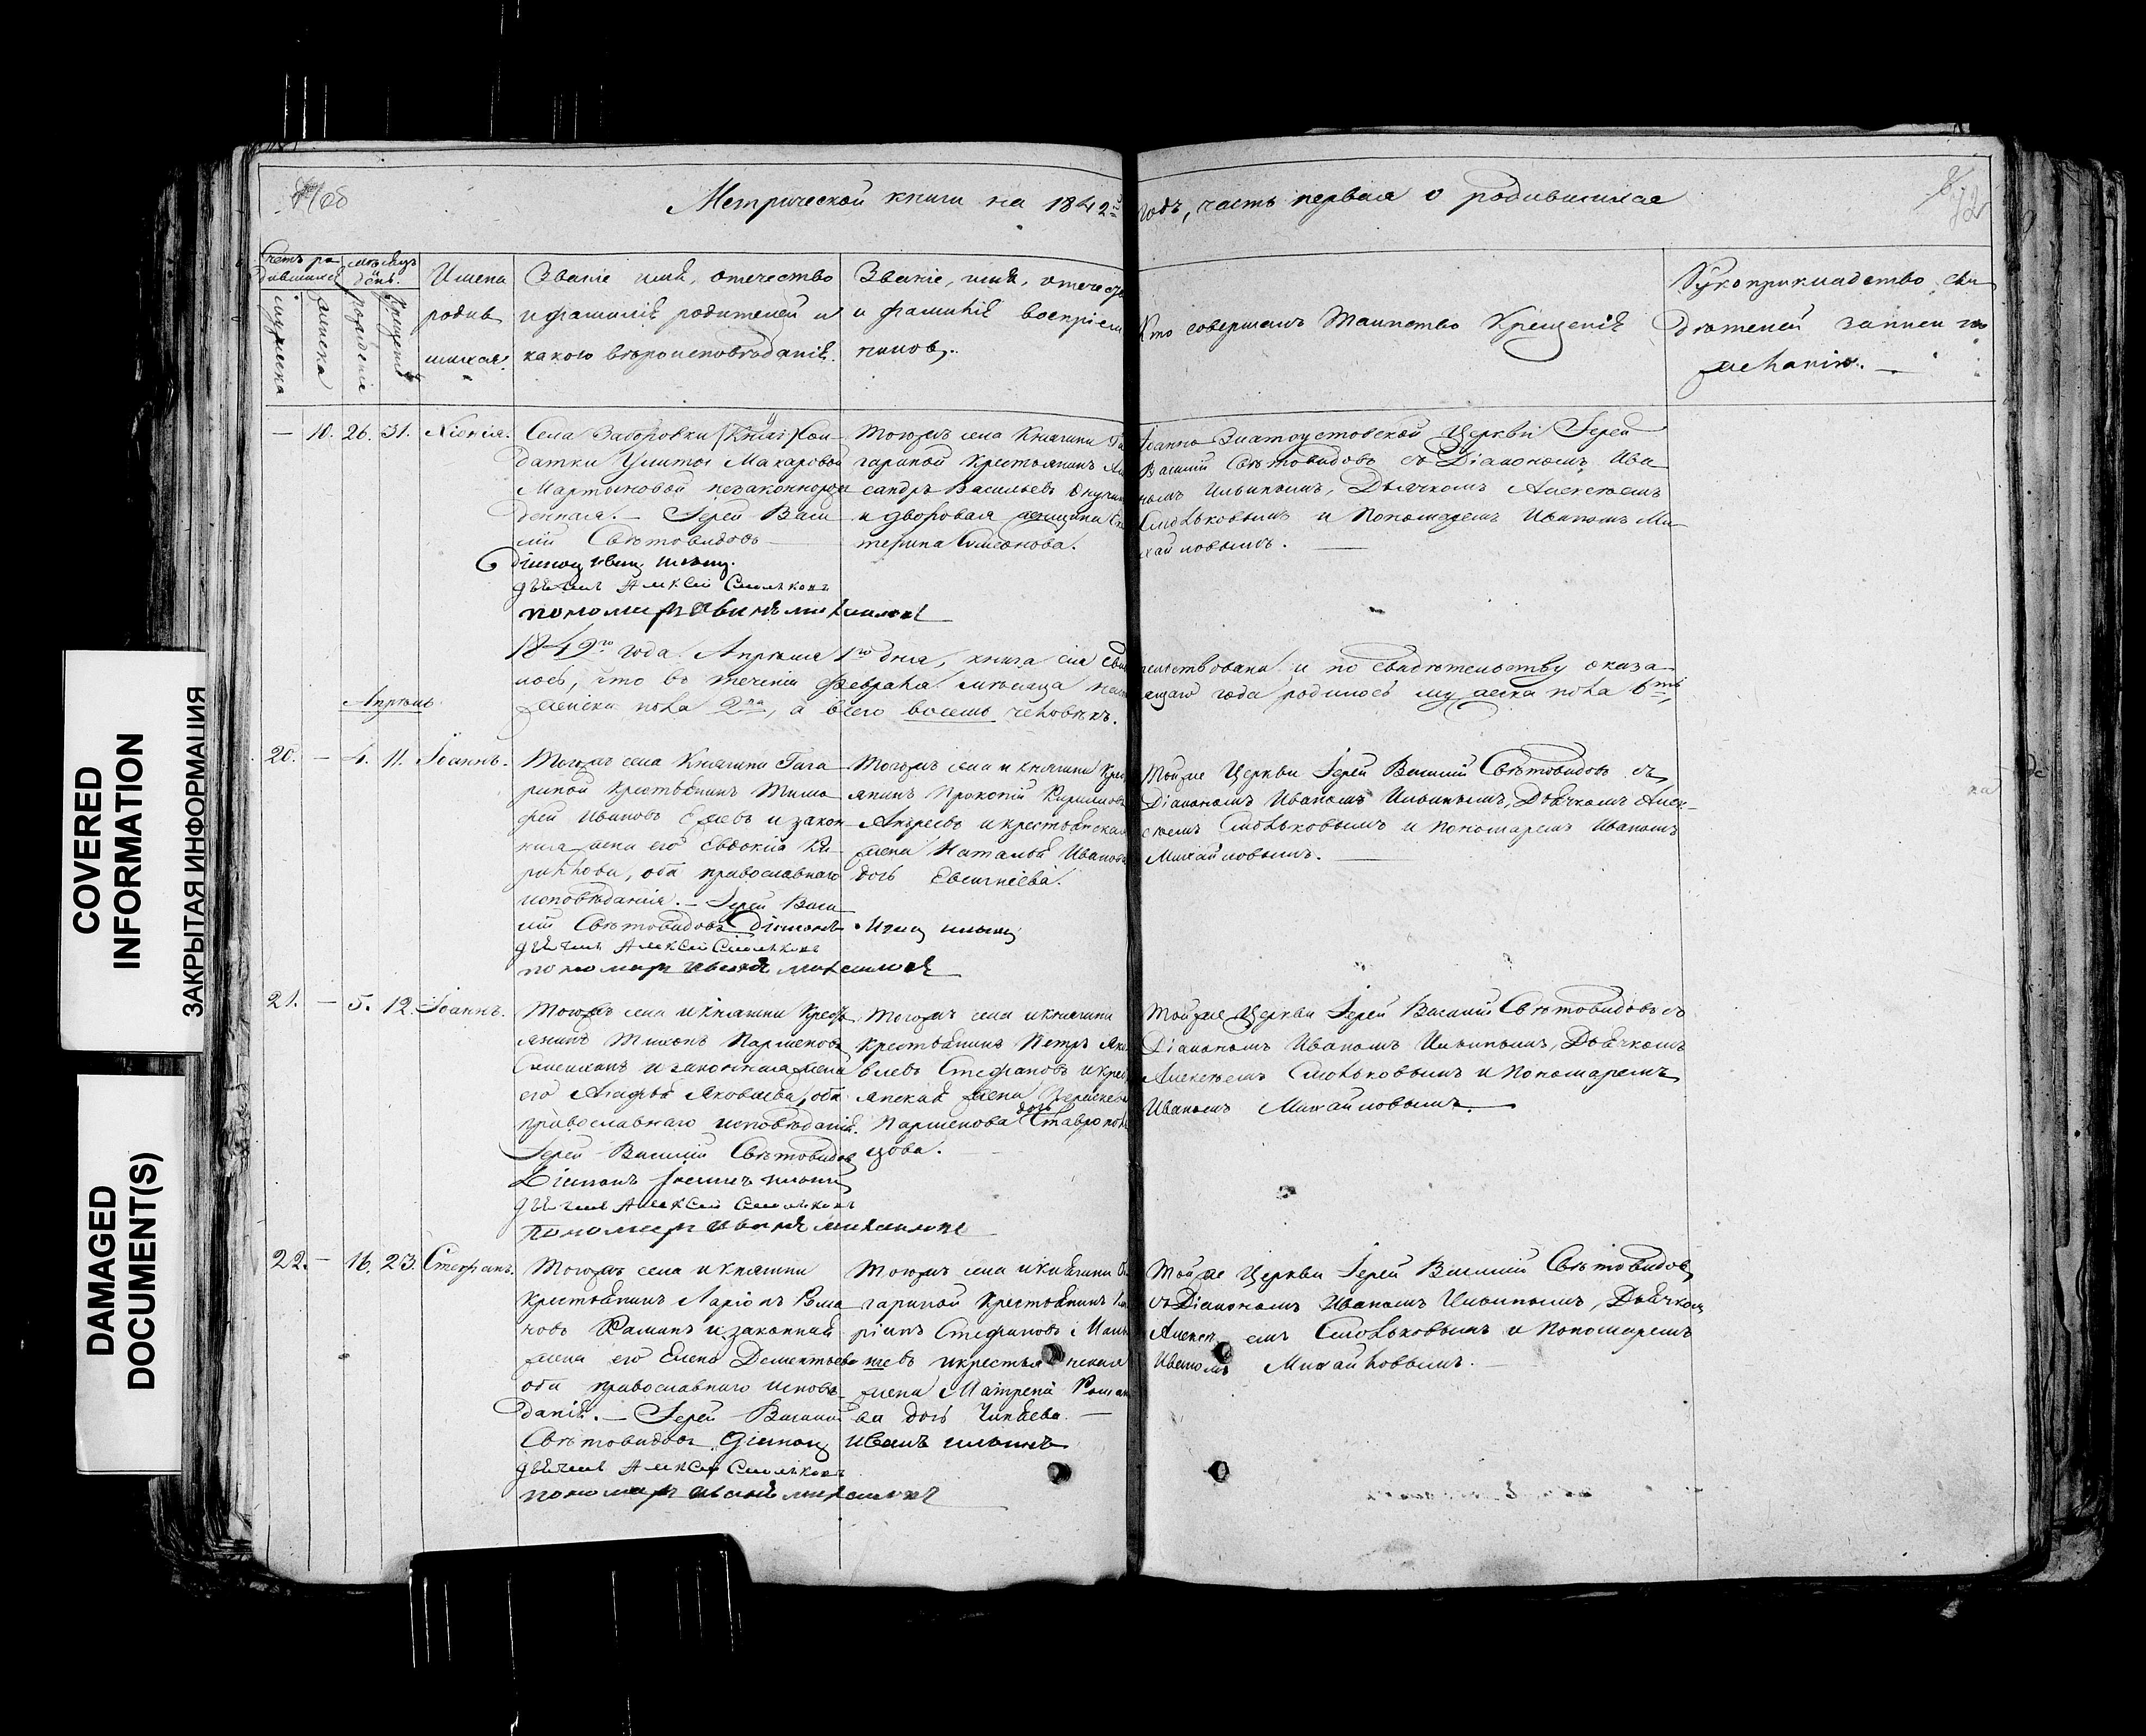 Метрической книги на 1842й годъ, часть первая о родившихся
Счетъ ро-
дившихся
мужеска
женска
мѣсяцъ
и день.
рожденіе
крещеніе
Имена
родив
шихся.
Званіе имя, отечество
и фамилія родителей и
какого вѣроисповѣданія.
Званіе, имя, отечество
и фамилія воспріем
никовъ.
Кто совершалъ Таинство Крещенія
Рукоприкладство сви
дѣтелей записи по
желанію.
— 10. 26. 31. Хіонія.
Села Заборовки Сол-
датки Улиты Макаровой
Мартыновой незаконнорож
денная. — Іерей Васи
лій Свѣтовидовъ
дьячекъ Алексей Смольковъ
пономарь Иванъ Михайловъ
Тогожъ села Княгини Га
гариной Крестьянинъ
сандръ Васильевъ
и дворовая женщина Ека
терина Симонова.
Іоанно Златоустовской Церкви Іерей
Василій Свѣтовидовъ съ Діакономъ Ива
номъ Ильинымъ, Дьячкомъ Алексѣемъ
Смольковымъ и Пономаремъ Иваномъ Ми
хайловымъ.
года Апрѣля 1го дня, книга сія свидѣтельствована и по свидѣтельству оказа-
лось, что въ теченіи Февраля мѣсяца года родилось мужеска пола 6ть,
женска пола 2ва, а всего восемь человѣкъ.
Апрѣль
20. — 4. 11. Іоаннъ.
Тогожъ села Княгини Гага
риной крестьянинъ Тимо
фей Ивановъ и закон
ная жена его Евдокія Ки
рилова, оба православнаго
исповѣданія. — Іерей Васи
лій Свѣтовидовъ Діаконъ Иванъ Ильинъ
дьячекъ Алексей Смольковъ
пономарь Иванъ Михайловъ
Тогожъ села и княгини Кресть
янинъ Прокопій Кириловъ
Андреевъ и крестьянская
жена Наталья Иванова
дочь
Тойже Церкви Іерей Василій Свѣтовидовъ съ
Діакономъ Иваномъ Ильинымъ, Дьячкомъ Алек-
сѣемъ Смольковымъ и Пономаремъ Иваномъ
Михайловымъ.
21. — 5. 12. Іоаннъ.
Тогожъ села и княгини Кресть
янинъ Тихонъ Парменовъ
и законная жена
его Агафья Яковлева, оба
православнаго исповѣданія.
Іерей Василій Свѣтовидовъ
Діаконъ Іоаннъ Ильинъ
дьячекъ Алексей Смольковъ
пономарь Иванъ Михайловъ
Тогожъ села и княгини
Крестьянинъ Петръ Яко
влевъ Стефановъ и крест
янская жена
Парменова дочь Ставропол
цова.
Тойже Церкви Іерей Василій Свѣтовидовъ съ
Діакономъ Иваномъ Ильинымъ, Дьячкомъ
Алексѣемъ Смольковымъ и Пономаремъ
Иваномъ Михайловымъ.
22. — 16. 23. Стефанъ.
Тогожъ села и княгини
Крестьянинъ Ларіонъ
и законная
жена его Елена Дементьева
оба православнаго исповѣ
данія. — Іерей Василій
Свѣтовидовъ Діаконъ Иванъ Ильинъ
дьячекъ Алексей Смольковъ
пономарь Иванъ Михайловъ
Тогожъ села и княгини
гариной Крестьянинъ
Стефановъ
и крестьянская
жена Матрена Роман
ва дочь
Тойже Церкви Іерей Василій Свѣтовидовъ
съ Діакономъ Иваномъ Ильинымъ, Дьячкомъ
Алексѣемъ Смольковымъ и Пономаремъ
Иваномъ Михайловымъ.
COVERED
INFORMATION
ЗАКРЫТАЯ ИНФОРМАЦИЯ
DAMAGED
DOCUMENT(S)